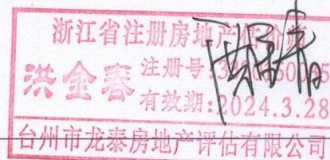 浙江省注册房地产估价师
洪金春
注册号:3
有效期:2024.3.28
台州市龙泰房地产评估有限公司